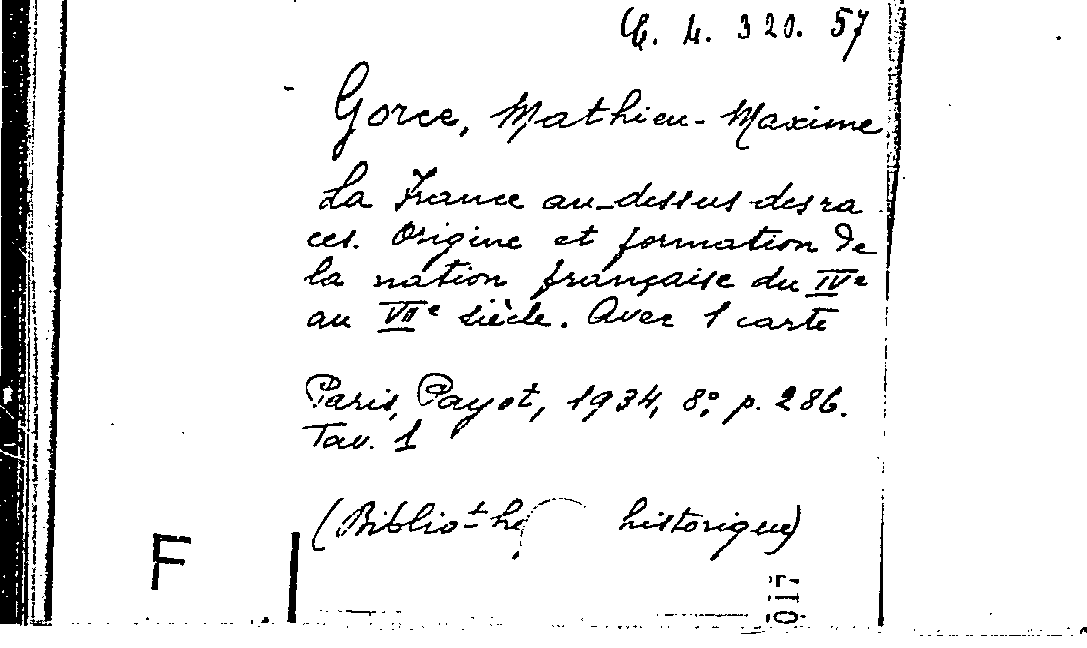 C. 4. 320. 57
Gorce, Mathieu-Maxime
La France au-dessus des ra
ces. Origine et formation de
la nation française du IVe
au VIIe siècle. Avec 1 carte
Paris, Payot, 1934, 8°, p. 286.
Tav. 1
(Biblioth historique)
F
017